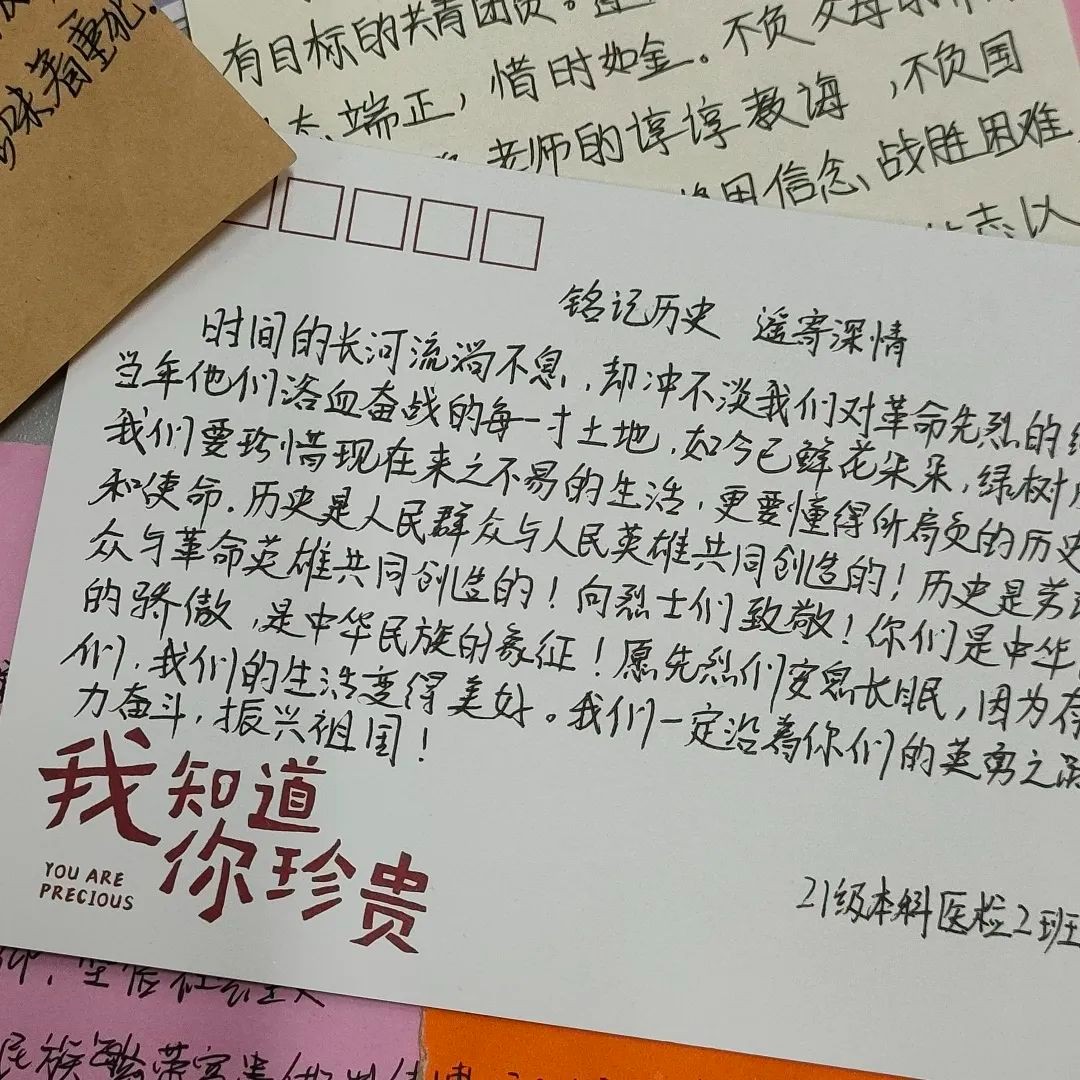 味着重
有目标的共青团员。
端正，惜时如金。不负父母的
老师的谆谆教诲，不负国
用信念、战胜困难
志以
铭记历史 遥寄深情
时间的长河流淌不息，却冲不淡我们对革命先烈的
当年他们洛血奋战的每一寸土地，如今已鲜花朵朵，绿树
我们要珍惜现在来之不易的生活，更要懂得所肩负的历史
和使命．历史是人民群众与人民英雄共同创造的！历史是劳
众与革命英雄共同创造的！向烈士们致敬！你们是中华
的骄傲，是中华民族的象征！愿先烈们安息长眠，因为有
们，我们的生活变得美好。我们一定沿着你们的英勇之
力奋斗，振兴祖国！
我知道
你珍贵
YOU ARE
PRECIOUS
21级本科医检2班
坚信社会主义
民族繁荣